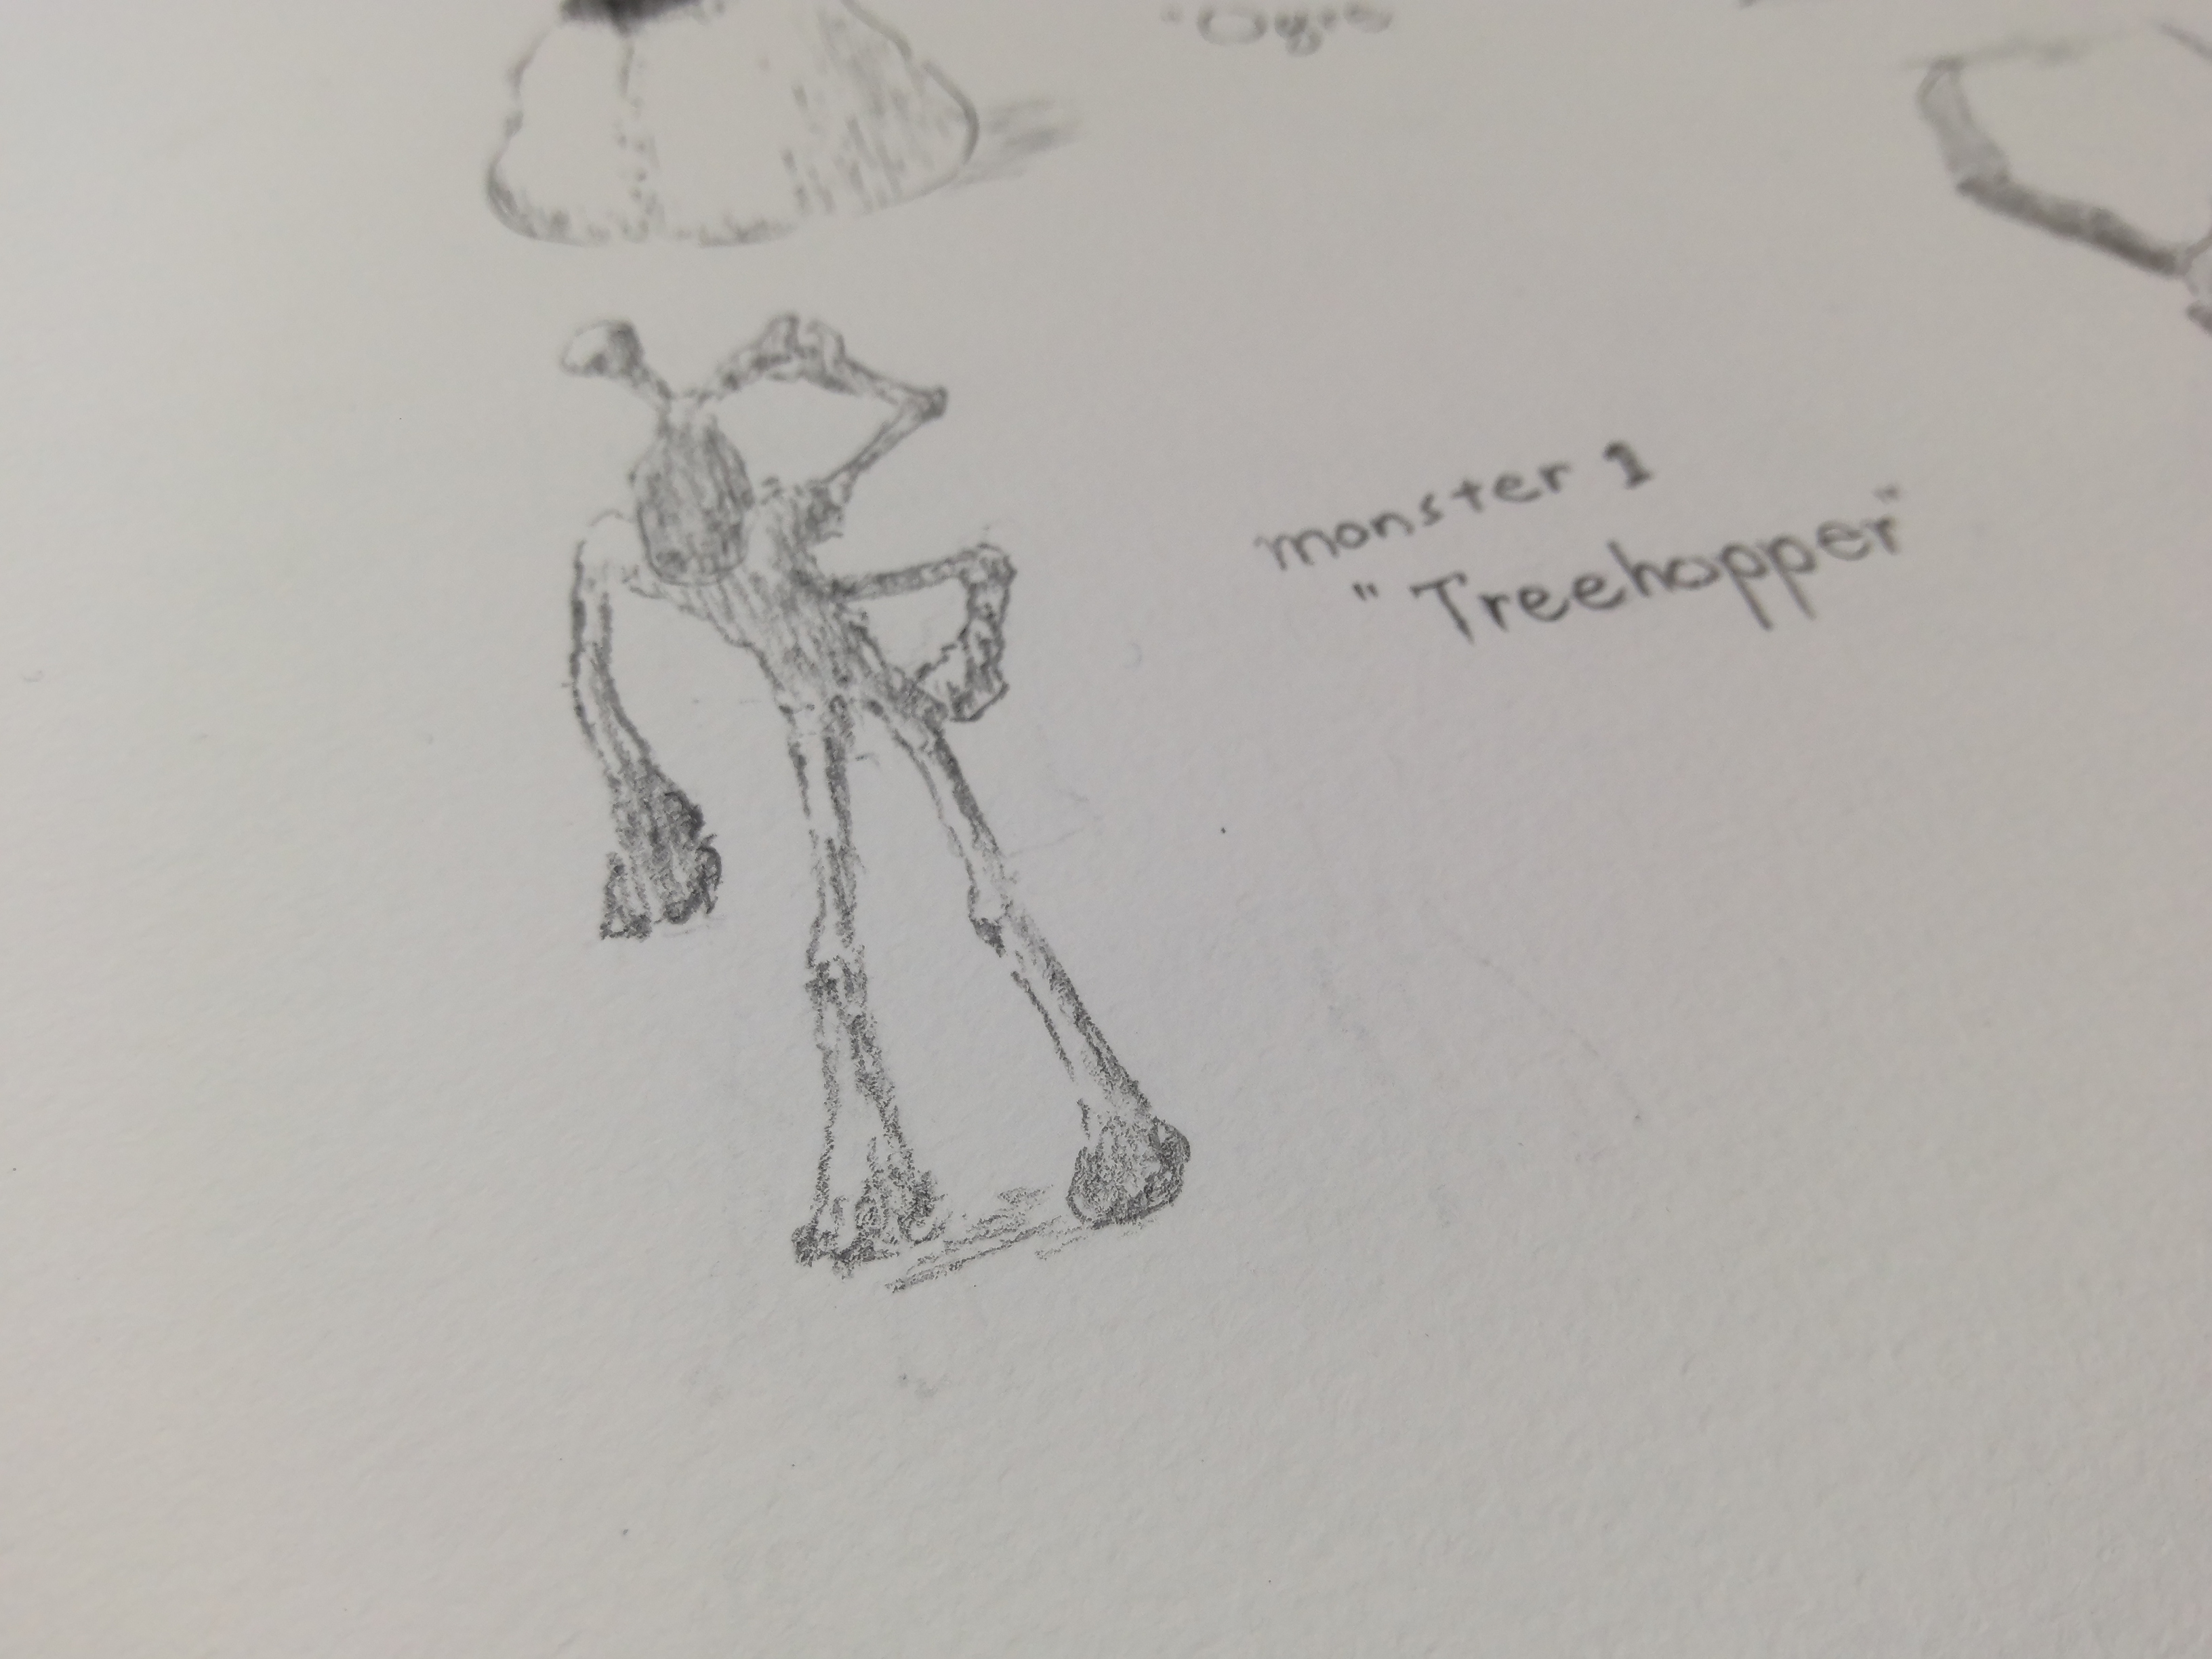 "Ogre
monster 1
"Treehopper"